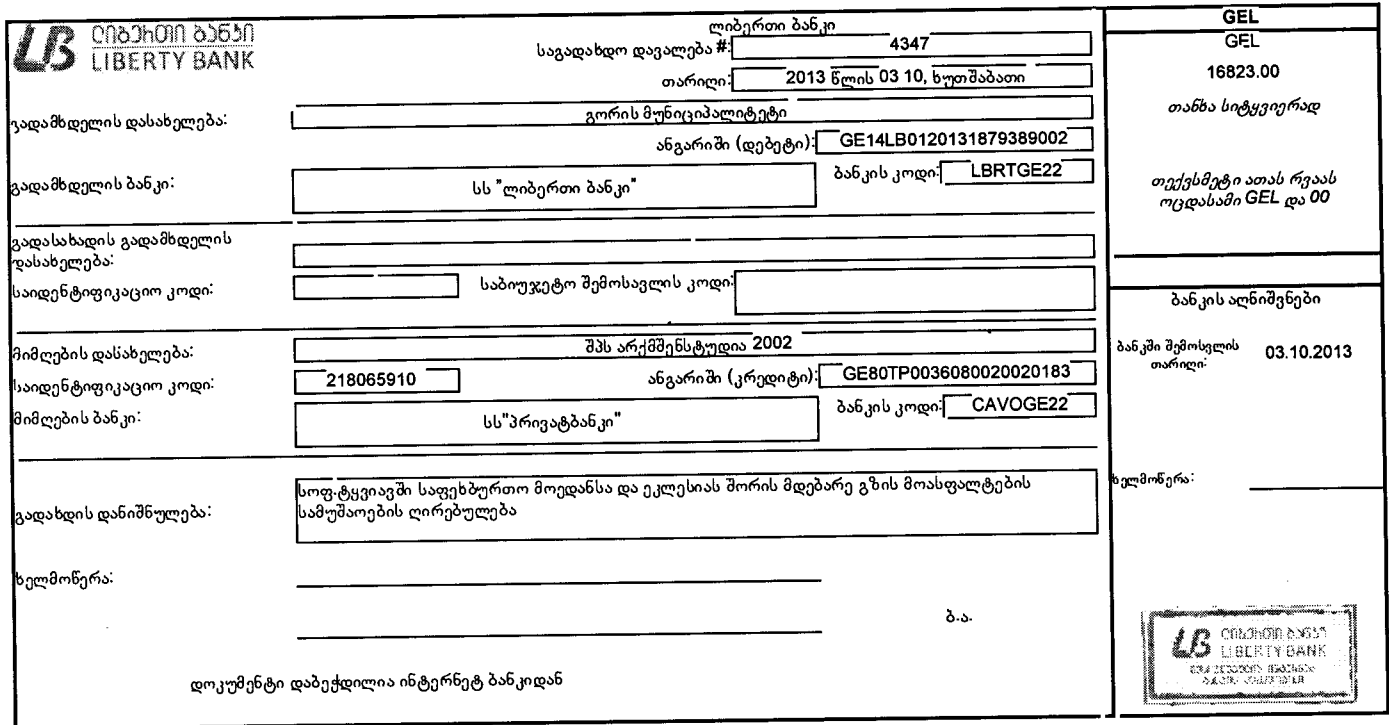 ლიბერთი ბანკი
LIBERTY BANK
ლიბერთი ბანკი
საგადახდო დავალება #: 4347
თარიღი: 2013 წლის 03 10, ხუთშაბათი
გადამხდელის დასახელება: გორის მუნიციპალიტეტი
ანგარიში (დებეტი): GE14LB0120131879389002
გადამხდელის ბანკი: სს "ლიბერთი ბანკი" ბანკის კოდი: LBRTGE22
გადასახადის გადამხდელის
დასახელება:
საიდენტიფიკაციო კოდი: საბიუჯეტო შემოსავლის კოდი:
მიმღების დასახელება: შპს არქმშენსტუდია 2002
საიდენტიფიკაციო კოდი: 218065910 ანგარიში (კრედიტი): GE80TP0036080020020183
მიმღების ბანკი: სს"პრივატბანკი" ბანკის კოდი: CAVOGE22
გადახდის დანიშნულება: სოფ.ტყვიავში საფეხბურთო მოედანსა და ეკლესიას შორის მდებარე გზის მოასფალტების
სამუშაოების ღირებულება
ხელმოწერა:
ბ.ა.
დოკუმენტი დაბეჭდილია ინტერნეტ ბანკიდან
GEL
GEL
16823.00
თანხა სიტყვიერად
თექვსმეტი ათას რვაას
ოცდასამი GEL და 00
ბანკის აღნიშვნები
ბანკში შემოსვლის
თარიღი: 03.10.2013
ხელმოწერა:
ლიბერთი ბანკი
LIBERTY BANK